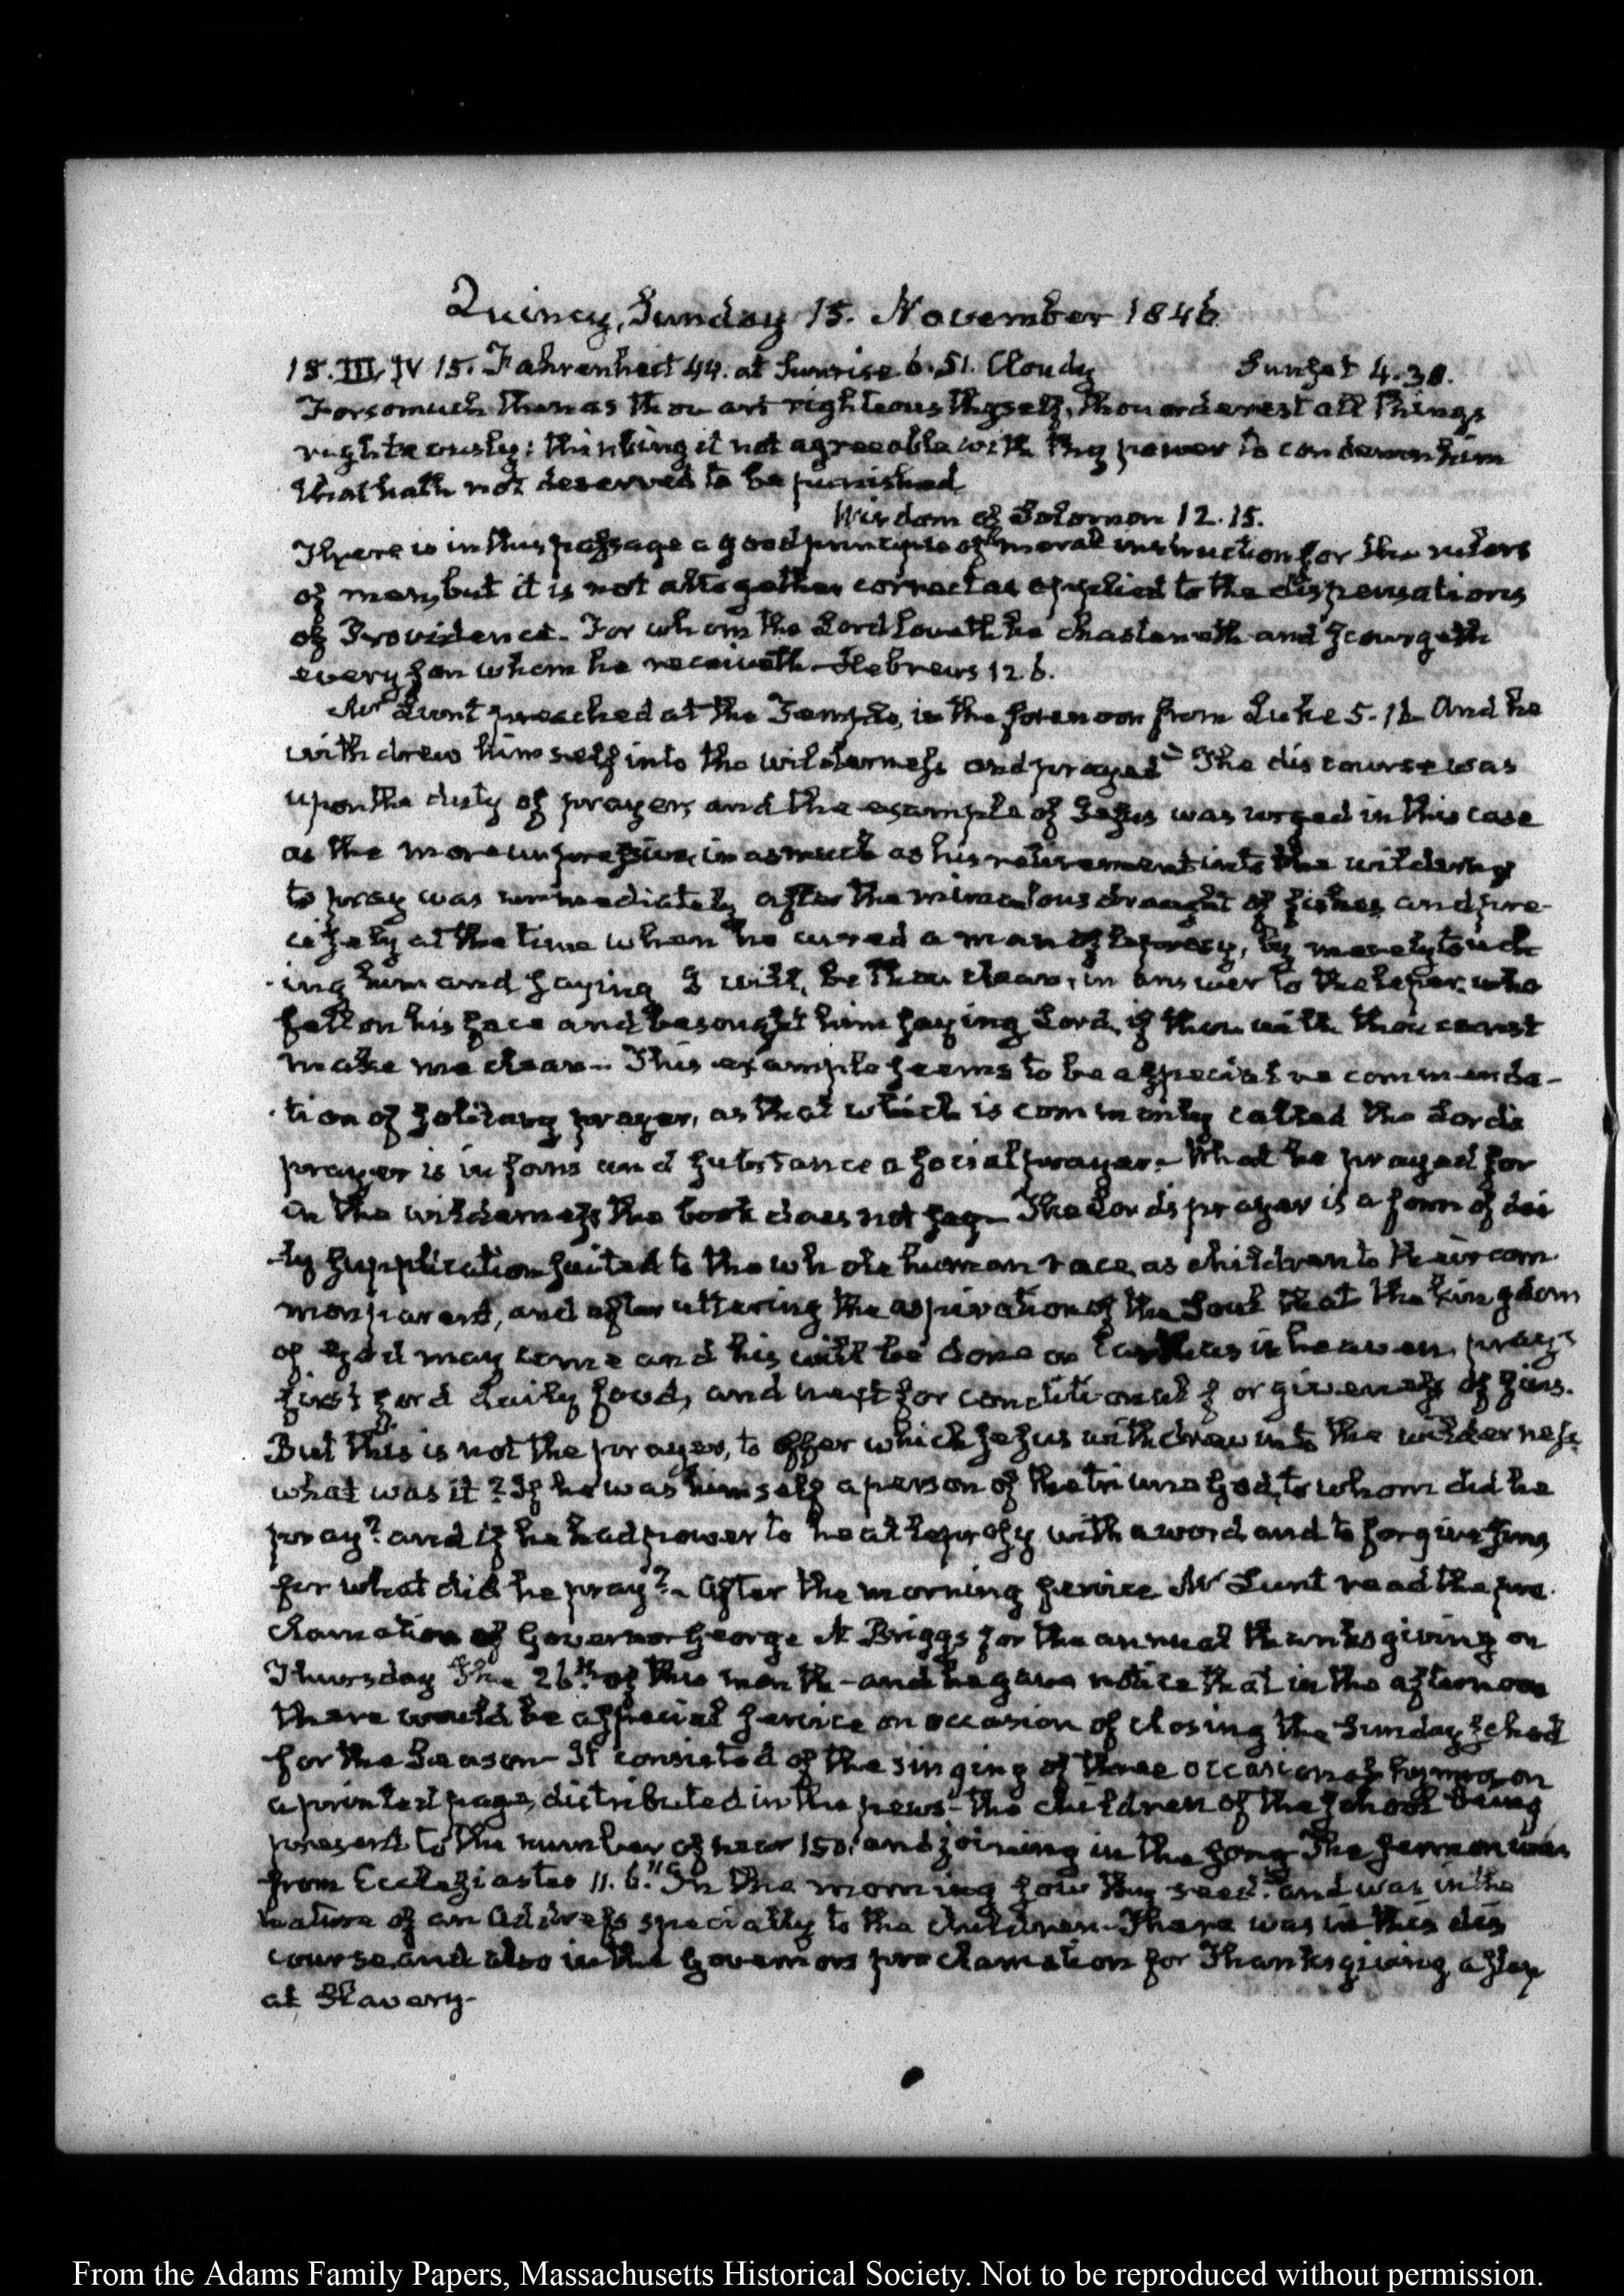 Quincy, Sunday 15. November 1846.
15. III. IV 15. Fahrenheit 44. at Sunrise 6.51. Cloudy Sunset 4.38.
Forsomuch then as thou art righteous thyself, thou orderest all things
righteously: thinking it not agreeable with thy power to condemn him
that hath not deserved to be punished
Wisdom of Solomon 12.15.
There is in this passage a good principle of moral instruction for the rulers
of men, but it is not altogether correct as applied to the dispensations
of Providence. For whom the Lord loveth he chasteneth and scourgeth
every son whom he receiveth — Hebrews 12.6.
Mr Lunt preached at the Temple, in the forenoon from Luke 5.16 And he
withdrew himself into the wilderness and prayed" The discourse was
upon the duty of prayer, and the example of Jesus was urged in this case
as the more impressive, inasmuch as his retirement into the wilderness
to pray was immediately after the miraculous draught of fishes, and pre-
cisely at the time when he cured a man of leprosy, by merely touch
-ing him and saying I will, be thou clean, in answer to the leper, who
fell on his face and besought him saying Lord, if thou wilt thou canst
make me clean — This example seems to be a special recommenda-
-tion of solitary prayer, as that which is commonly called the Lord's
prayer is in form and substance a social prayer. What he prayed for
in the wilderness the book does not say — The Lords prayer is a form of dai
-ly supplication suited to the whole human race, as children to their com
mon parent, and after uttering the aspiration of the Soul that the kingdom
of God may come and his will be done on Earth as in heaven, prays
first for daily food, and next for conditional forgiveness of sins.
But this is not the prayer, to offer which Jesus withdrew into the wilderness.
what was it? If he was himself a person of the triune God, to whom did he
pray? and if he had power to heal leprosy with a word and to forgive sins,
for what did he pray? — After the morning service Mr Lunt read the pro-
clamation of Governor George N Briggs for the annual thanksgiving on
Thursday the 26th. of this month — and he gave notice that in the afternoon
there would be a special service on occasion of closing the Sunday School
for the Season — It consisted of the singing of three occasional hymns on
a printed page, distributed in the pews — the children of the School being
present to the number of near 150. and joining in the song — The sermon was
from Ecclesiastes 11.6. "In the morning sow thy seed." and was in the
nature of an Address specially to the children. There was in this dis
course, and also in the Governors proclamation for Thanksgiving a slap
at Slavery —
From the Adams Family Papers, Massachusetts Historical Society. Not to be reproduced without permission.